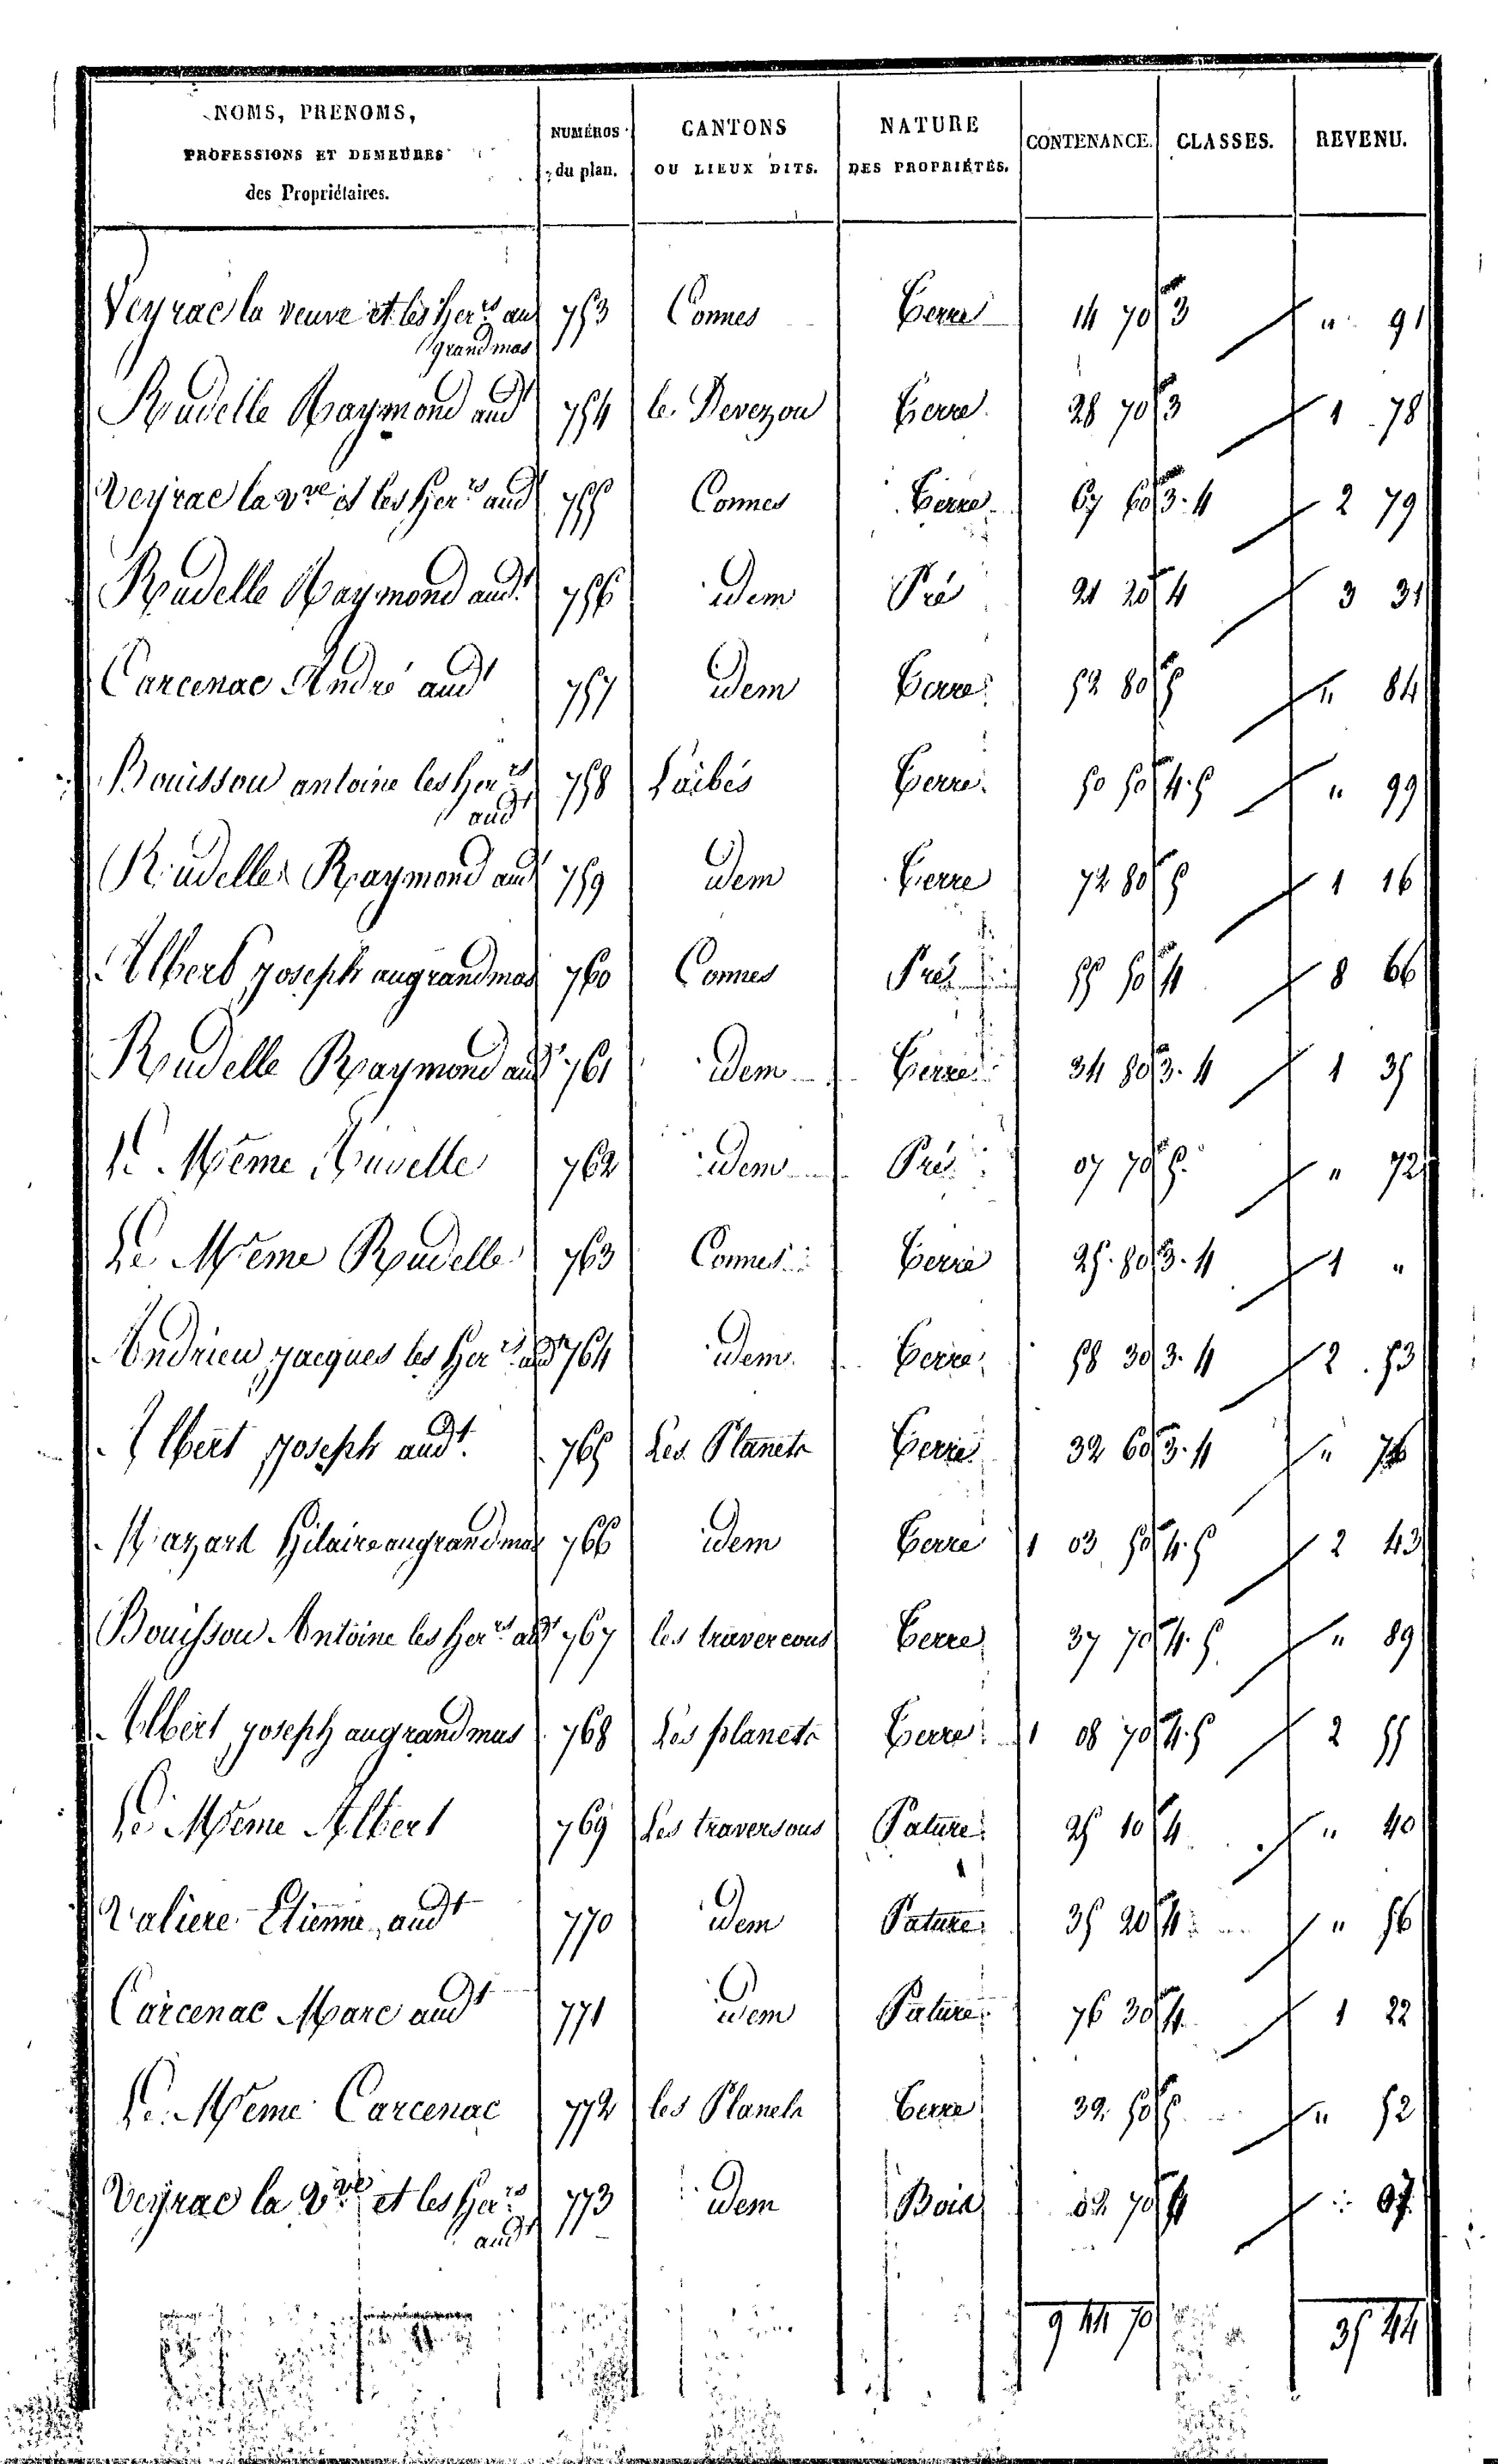 NOMS, PRENOMS, PROFESSIONS ET DEMEURES des Propriétaires. NUMÉROS du plan. CANTONS OU LIEUX DITS. NATURE DES PROPRIÉTÉS. CONTENANCE. CLASSES. REVENU.
Veyrac la veuve et les Her.rs au grandmas 753 Connes Terre 14 70 3 " 91
Rudelle Raymond aud.t 754 le Devezou Terre 28 70 3 1 78
Veyrac la v.ve et les Her.rs aud.t 755 Connes Terre 67 60 3.4 2 79
Rudelle Raymond aud.t 756 idem Pré 21 20 4 3 31
Carcenac André aud.t 757 idem Terre 52 80 5 " 84
Bouissou antoine les Her.rs aud.t 758 Laibés Terre 50 50 4.5 " 99
Rudelle Raymond aud.t 759 idem Terre 72 80 5 1 16
Albert joseph augrandmas 760 Connes Pré 55 50 4 8 66
Rudelle Raymond aud.t 761 idem Terre 34 80 3.4 1 35
le Même Rudelle 762 idem Pré 07 70 5 " 72
Le Même Rudelle 763 Connes Terre 25 80 3.4 1 "
Andrieu jacques les Her.rs aud.t 764 idem Terre 58 30 3.4 2 53
Albert joseph aud.t 765 Les Planets Terre 32 60 3.4 " 76
Mazart Hilaire augrandmas 766 idem Terre 1 03 50 4.5 2 43
Bouissou Antoine les Her.rs aud.t 767 les travercous Terre 37 70 4.5 " 89
Albert joseph augrandmas 768 Les planets Terre 1 08 70 4.5 2 55
Le Même Albert 769 Les traversous Pature 25 10 4 " 40
Valiere Etienne aud.t 770 idem Pature 35 20 4 " 56
Carcenac Marc aud.t 771 idem Pature 76 30 4 1 22
Le Même Carcenac 772 les Planets Terre 32 50 5 " 52
Veyrac la v.ve et les Her.rs aud.t 773 idem Bois 02 70 4 " 07
9 44 70 35 44